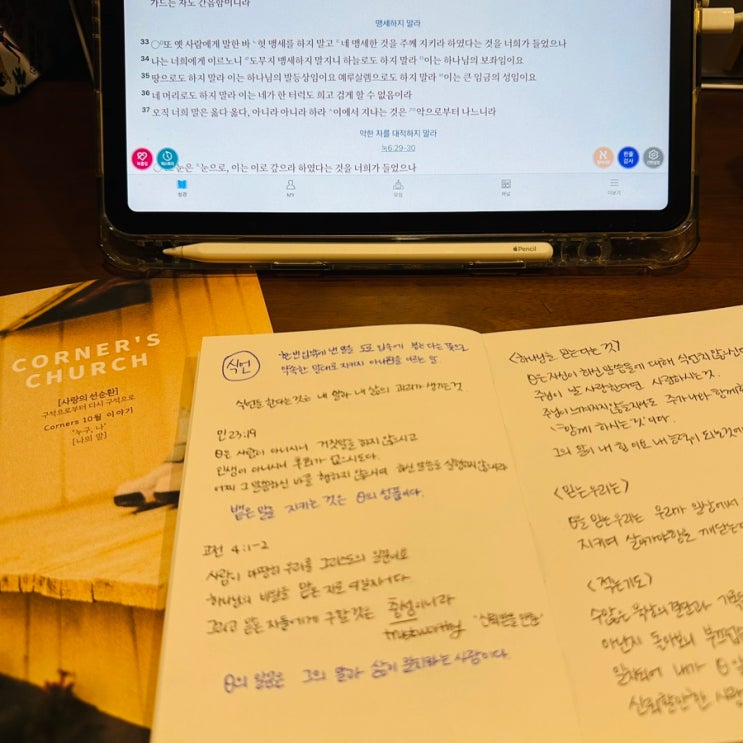 가드는 자도 간음함이니라
맹세하지 말라
33 ○또 옛 사람에게 말한 바 헛 맹세를 하지 말고 네 맹세한 것을 주께 지키라 하였다는 것을 너희가 들었으나
34 나는 너희에게 이르노니 도무지 맹세하지 말지니 하늘로도 하지 말라 이는 하나님의 보좌임이요
35 땅으로도 하지 말라 이는 하나님의 발등상임이요 예루살렘으로도 하지 말라 이는 큰 임금의 성임이요
36 네 머리로도 하지 말라 이는 네가 한 터럭도 희고 검게 할 수 없음이라
37 오직 너희 말은 옳다 옳다, 아니라 아니라 하라 이에서 지나는 것은 악으로부터 나느니라
악한 자를 대적하지 말라
눅6:29-30
눈은 눈으로, 이는 이로 갚으라 하였다는 것을 너희가 들었으나
성경
MY
더보기
Pencil
CORNER'S
CHURCH
[사랑의 선순환]
구석으로부터 다시 구석으로
Corners 10월 이야기
"누구, 나"
[나의 말]
식언
한번 입 밖에 낸 말을 도로 입속에 넣는다는 뜻으로
약속한 말대로 지키지 아니함을 이르는 말.
식언을 한다는 것은 내 말과 내 삶의 괴리가 생기는 것
민 23:19
은 사람이 아니시니 거짓말을 하지 않으시고
인생이 아니시니 후회가 없으시도다
어찌 그 말씀하신 바를 행하지 않으시며 하신 말씀을 실행하지 않으시랴
뱉은 말을 지키는 것은 의 성품이다.
고전 4:1-2
사람이 마땅히 우리를 그리스도의 일꾼이요
하나님의 비밀을 맡은 자로 여길지어다
그리고 맡은 자들에게 구할 것은 충성이니라
trustworthy
의 일꾼은 그의 말과 삶이 일치하는 사람이다.
<하나님을 믿는다는 것>
은 자신이 하신 말씀들에 대해 식언치 않으신
주님이 날 사랑한다면 사랑하시는 것.
주님이 느껴지지 않을지라도 주가 나와 함께
"함께 하시는 것"이다.
그의 말이 내 힘이요 내 능력이 되는 것
<믿는 우리는>
을 믿는 우리는 우리가 일상에서
지키며 살아가야함을 깨닫는다
<적는기도>
수많은 묵상의 결단과 기록
아닌지 돌아보니 부끄럽
일치되어 내가
신뢰할만한 사람